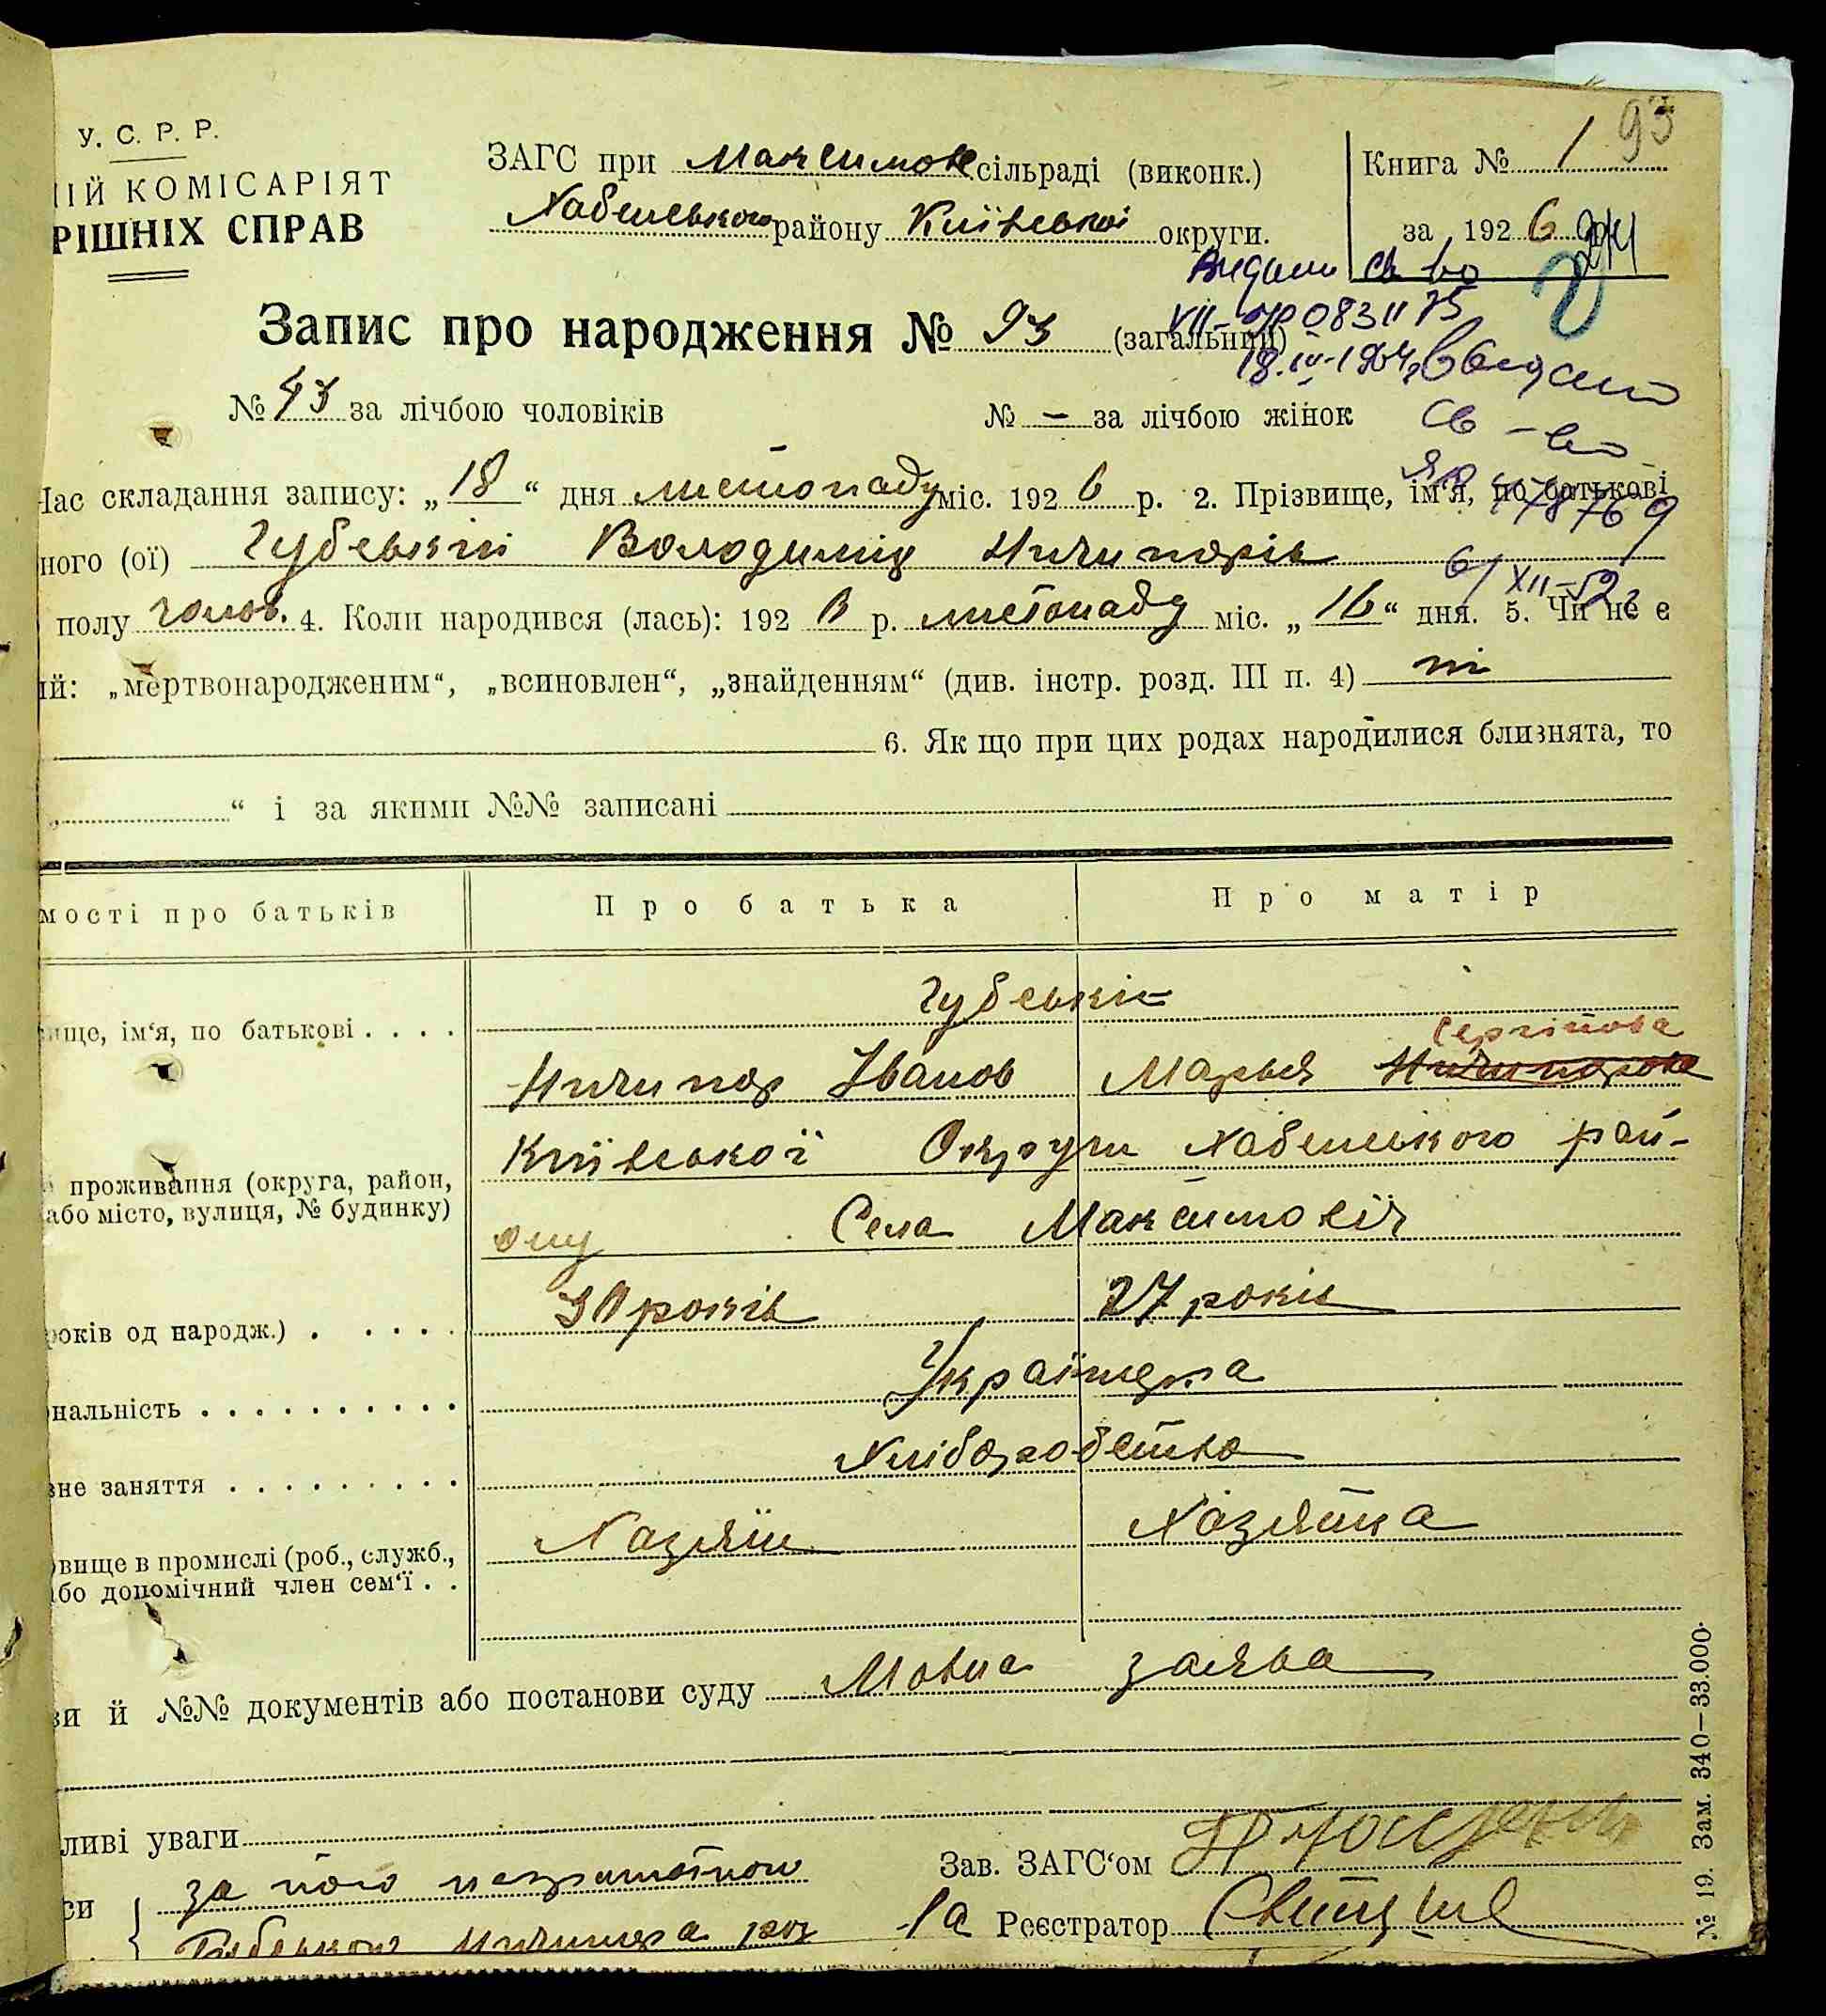 93
У. С. Р. Р.
ІЙ КОМІСАРІЯТ
РІШНІХ СПРАВ
ЗАГС при Максимов сільраді (виконк.)
Хабенського району Київської округи.
Книга № 1
за 1926
Видани св во
Запис про народження № 93 (загальний)
18.IV-1964
№ 43 за лічбою чоловіків № – за лічбою жінок
св-во
Час складання запису: „18“ дня листопаду міс. 1926 р. 2. Прізвище, ім'я, по батькові
ного (ої) Губський Володимир Ничипорів
6/XII-52
полу чолов. 4. Коли народився (лась): 1926 р. листопаду міс. „16“ дня. 5. Чи не є
ий: „мертвонародженим“, „всиновлен“, „знайденням“ (див. інстр. розд. III п. 4) ні
6. Як що при цих родах народилися близнята, то
„ “ і за якими №№ записані
мості про батьків Про батька Про матір
Губські
вище, ім'я, по батькові
Сергійова
Ничипор Іванов Марья Ничипорова
проживання (округа, район,
або місто, вулиця, № будинку)
Київської Округи Хабенського рай-
ону Села Максимовіч
років од народж.) 30 років 27 років
нальність Українера
вне заняття Хліборобство
овище в промислі (роб., служб.,
або допомічний член сем'ї
Хазяїн Хазяйка
ви й №№ документів або постанови суду Мовна заява
ливі уваги
си за його неграмотного
Зав. ЗАГС'ом
Губського Ничипора роз
Реєстратор
№ 19. Зам. 340—33.000.